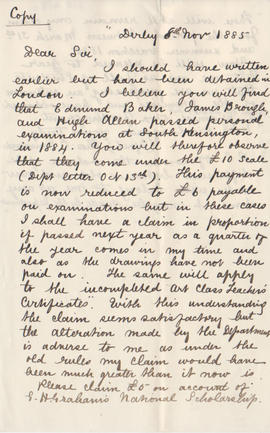 Copy
"Derby 8th Nov 1885
Dear Sir,
I should have written
earlier but have been detained in
London. I believe you will find
that Edmund Baker, James Brough,
and Hugh Allan passed personal
examinations at South Kensington,
in 1884. You will therefore observe
that they come under the £10 scale
(Dept letter Oct 13th). This payment
is now reduced to £6 payable
on examinations but in these cases
I shall have a claim in proportion
if passed next year as a quarter of
the year comes in my time and
also as the drawings have not been
paid on. The same will apply
to the incompleted Art Class Teacher's
Certificates". With this understanding
the claim seems satisfactory but
the alteration made by the Department
is adverse to me as under the
old rules my claim would have
been much greater than it now is.
Please claim £5 on account of
Graham's National Scholarship.